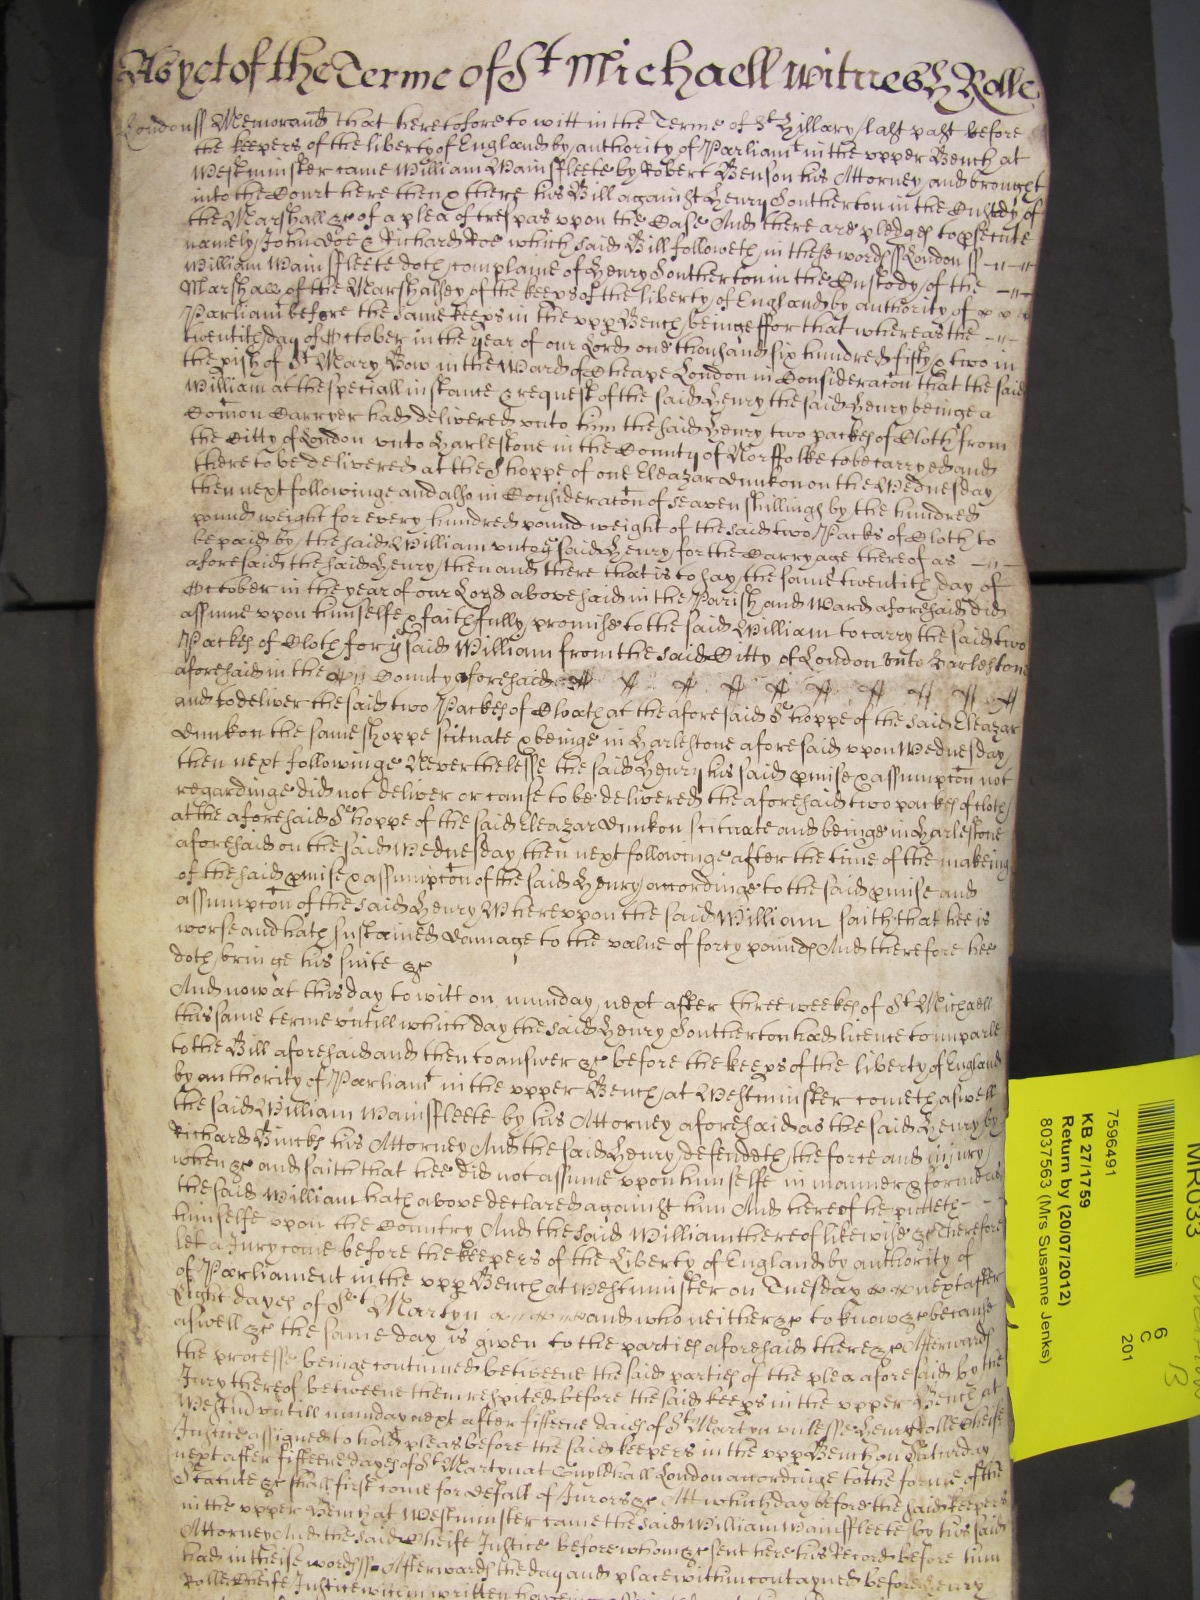 As yet of the Terme of St Michaell witnes H Rolle
London ss Memorand that heretofore to witt in the Terme of St Hillary last past before
the keepers of the liberty of England by authority of Parliamt in the upper Bench at
Westminster came William Mainffleete by Robert Benson his Attorney and brought
into the Court here then & there his Bill against Henry Southerton in the Custody of
the Marshall &c of a plea of trespas upon the Case And there are pledges to psecute
namely John doe & Richard Roe which said Bill followeth in these words ss London ss
William Mainffleete doth complaine of Henry Southerton in the Custody of the
Marshall of the Marshalsey of the keeps of the liberty of England by authority of
Parliamt before the same keeps in the upp Bench beinge ffor that whereas the
twentith day of October in the year of our Lord one thousand six hundred fifty & two in
the pish of St Mary Bow in the Ward of Cheape London in Consideracon that the said
William at the speciall instance & request of the said Henry the said Henry beinge a
Comon Carryer had delivered unto him the said Henry two packes of Cloth from
the Citty of London unto Harlestone in the County of Norffolke to be carryed and
there to be delivered at the Shoppe of one Eleazar Dunkon on the Wednesday
then next followinge and also in Consideracon of seaven shillings by the hundred
pound weight for every hundred pound weight of the said two Packs of Cloth to
be paid by the said William unto ye said Henry for the Carryage thereof as
aforesaid the said Henry then and there that is to say the same twentith day of
October in the year of our Lord abovesaid in the Parish and Ward aforesaid did
assume upon himselfe & faithfully promise to the said William to carry the said two
Packes of Cloth for ye said William from the said Citty of London unto Harlestone
aforesaid in the County aforesaid
and to deliver the said two Packes of Cloath at the aforesaid Shoppe of the said Eleazar
Dunkon the same shoppe scituate & beinge in Harlestone aforesaid upon Wednesday
then next followinge Neverthelesse the said Henry his said pmise & assumpcon not
regardinge did not deliver or cause to be delivered the aforesaid two packes of cloth
at the aforesaid Shoppe of the said Eleazar Dunkon scituate and beinge in Harlestone
aforesaid on the said Wednesday then next followinge after the time of the makeing
of the said pmise & assumpcon of the said Henry accordinge to the said pmise and
assumpcon of the said Henry Whereupon the said William saith that hee is
worse and hath sustained damage to the value of forty pounds And therefore hee
doth bringe his suite &c
And now at this day to witt on munday next after three weekes of St Michaell
this same terme untill which day the said Henry Southerton had licence to imparle
to the Bill aforesaid and then to answer &c before the keeps of the liberty of England
by authority of Parliamt in the upper Bench at Westminster cometh aswell
the said William Mainffleete by his Attorney aforesaid as the said Henry by
Richard Bincks his Attorney And the said Henry defendeth the force and injury
when &c and saith that hee did not assume upon himselfe in manner & forme as
the said William hath above declared against him And thereof he putteth
himselfe upon the Country And the said William thereof likewise &c Therefore
let a Jury come before the keepers of the Liberty of England by authority of
of Parliament in the upp Bench at Westminster on Tuesday next after
Eight dayes of St Martyn and who neither &c to know &c because
aswell &c the same day is given to the parties aforesaid there &c Afterwards
the processe beinge continued betweene the said parties of the plea aforesaid by the
Jury thereof betweene them respited before the said keeps in the upper Bench at
Westm untill munday next after fifteene daies of St Martyn unlesse Henry Rolle Cheife
Justice assigned to hold pleas before the said keepers in the upp Bench on Saturday
next after fifteene dayes of St Martyn at Guyldhall London accordinge to the forme of the
Statute &c shall first come for default of Jurors &c Att which day before the said keepers
in the upper Bench at Westminster came the said William Mainffleete by his said
Attorney And the said Cheife Justice before whom &c sent here his Record before him
had in theise words ss Afterwards the day and place within contayned before Henry
Rolle Cheife Justice within written
MR033
7596491
KB 27/1759
Return by (20/07/2012)
8037563 (Mrs Susanne Jenks)
6
C
201